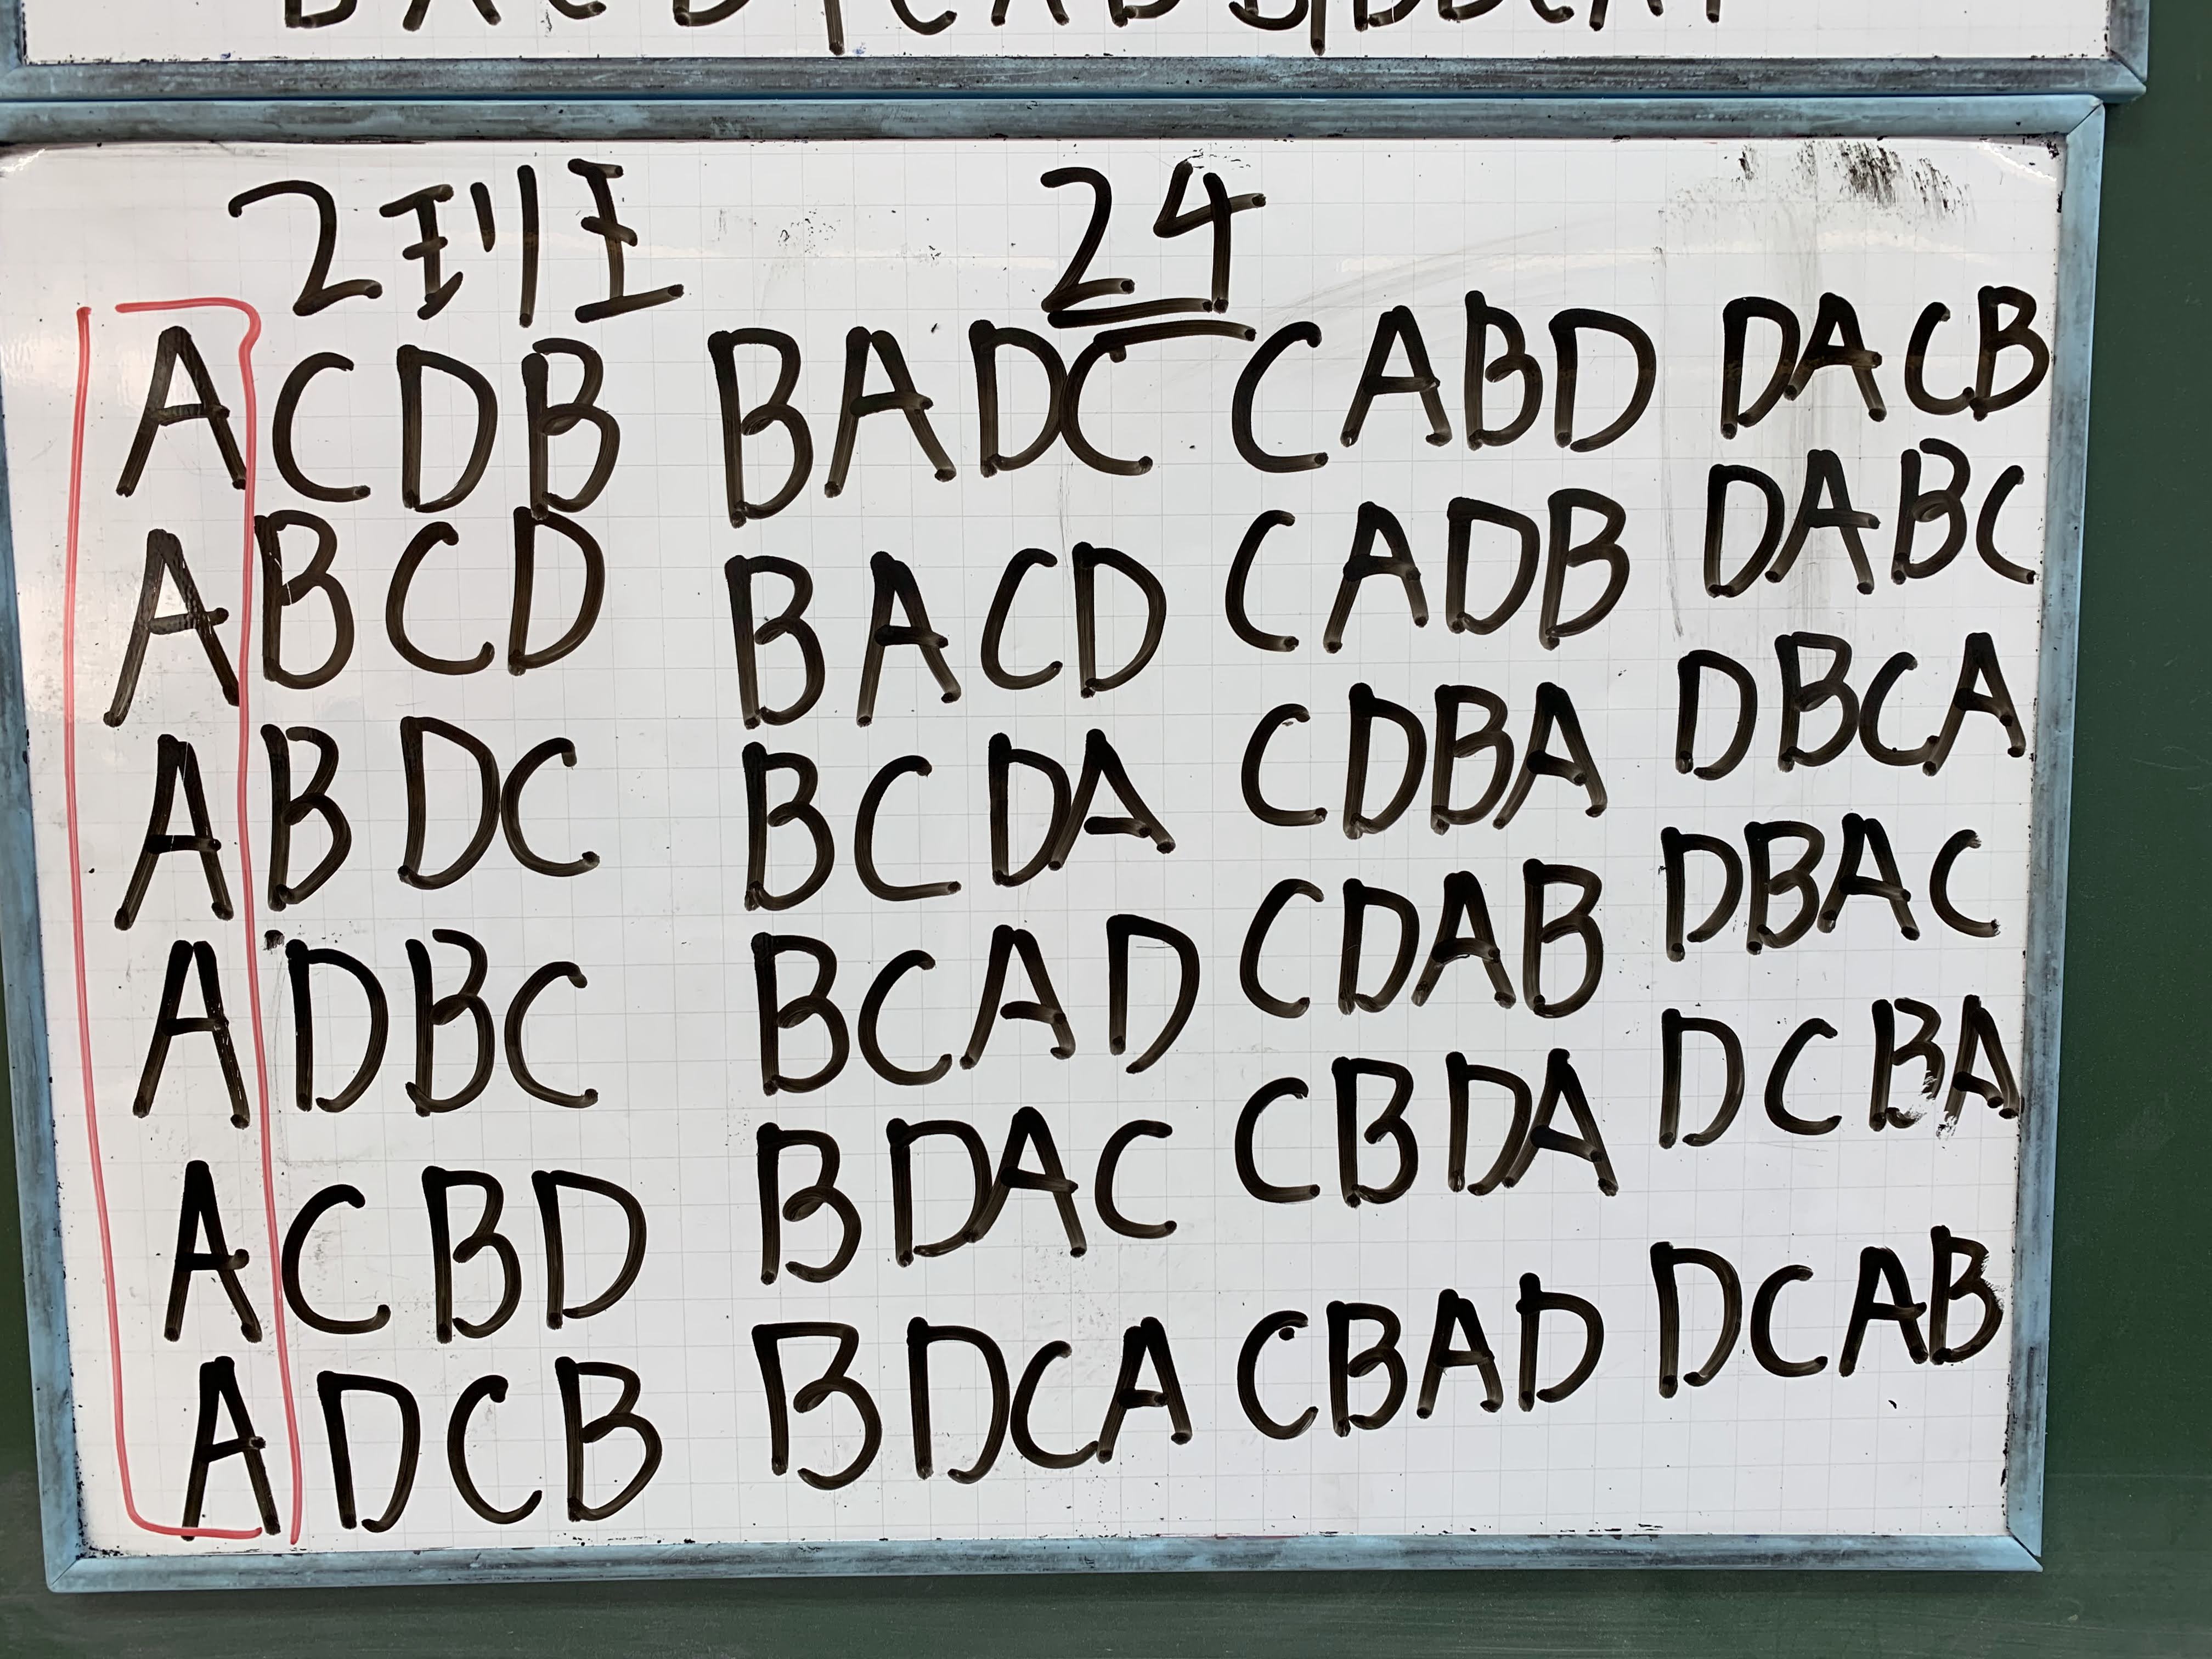 2 24
ACDB BADC CABD DACB
ABCD BACD CADB DABC
ABDC BCDA CDBA DBCA
ADBC BCAD CDAB DBAC
ACBD BDAC CBDA DCBA
ADCB BDCA CBAD DCAB